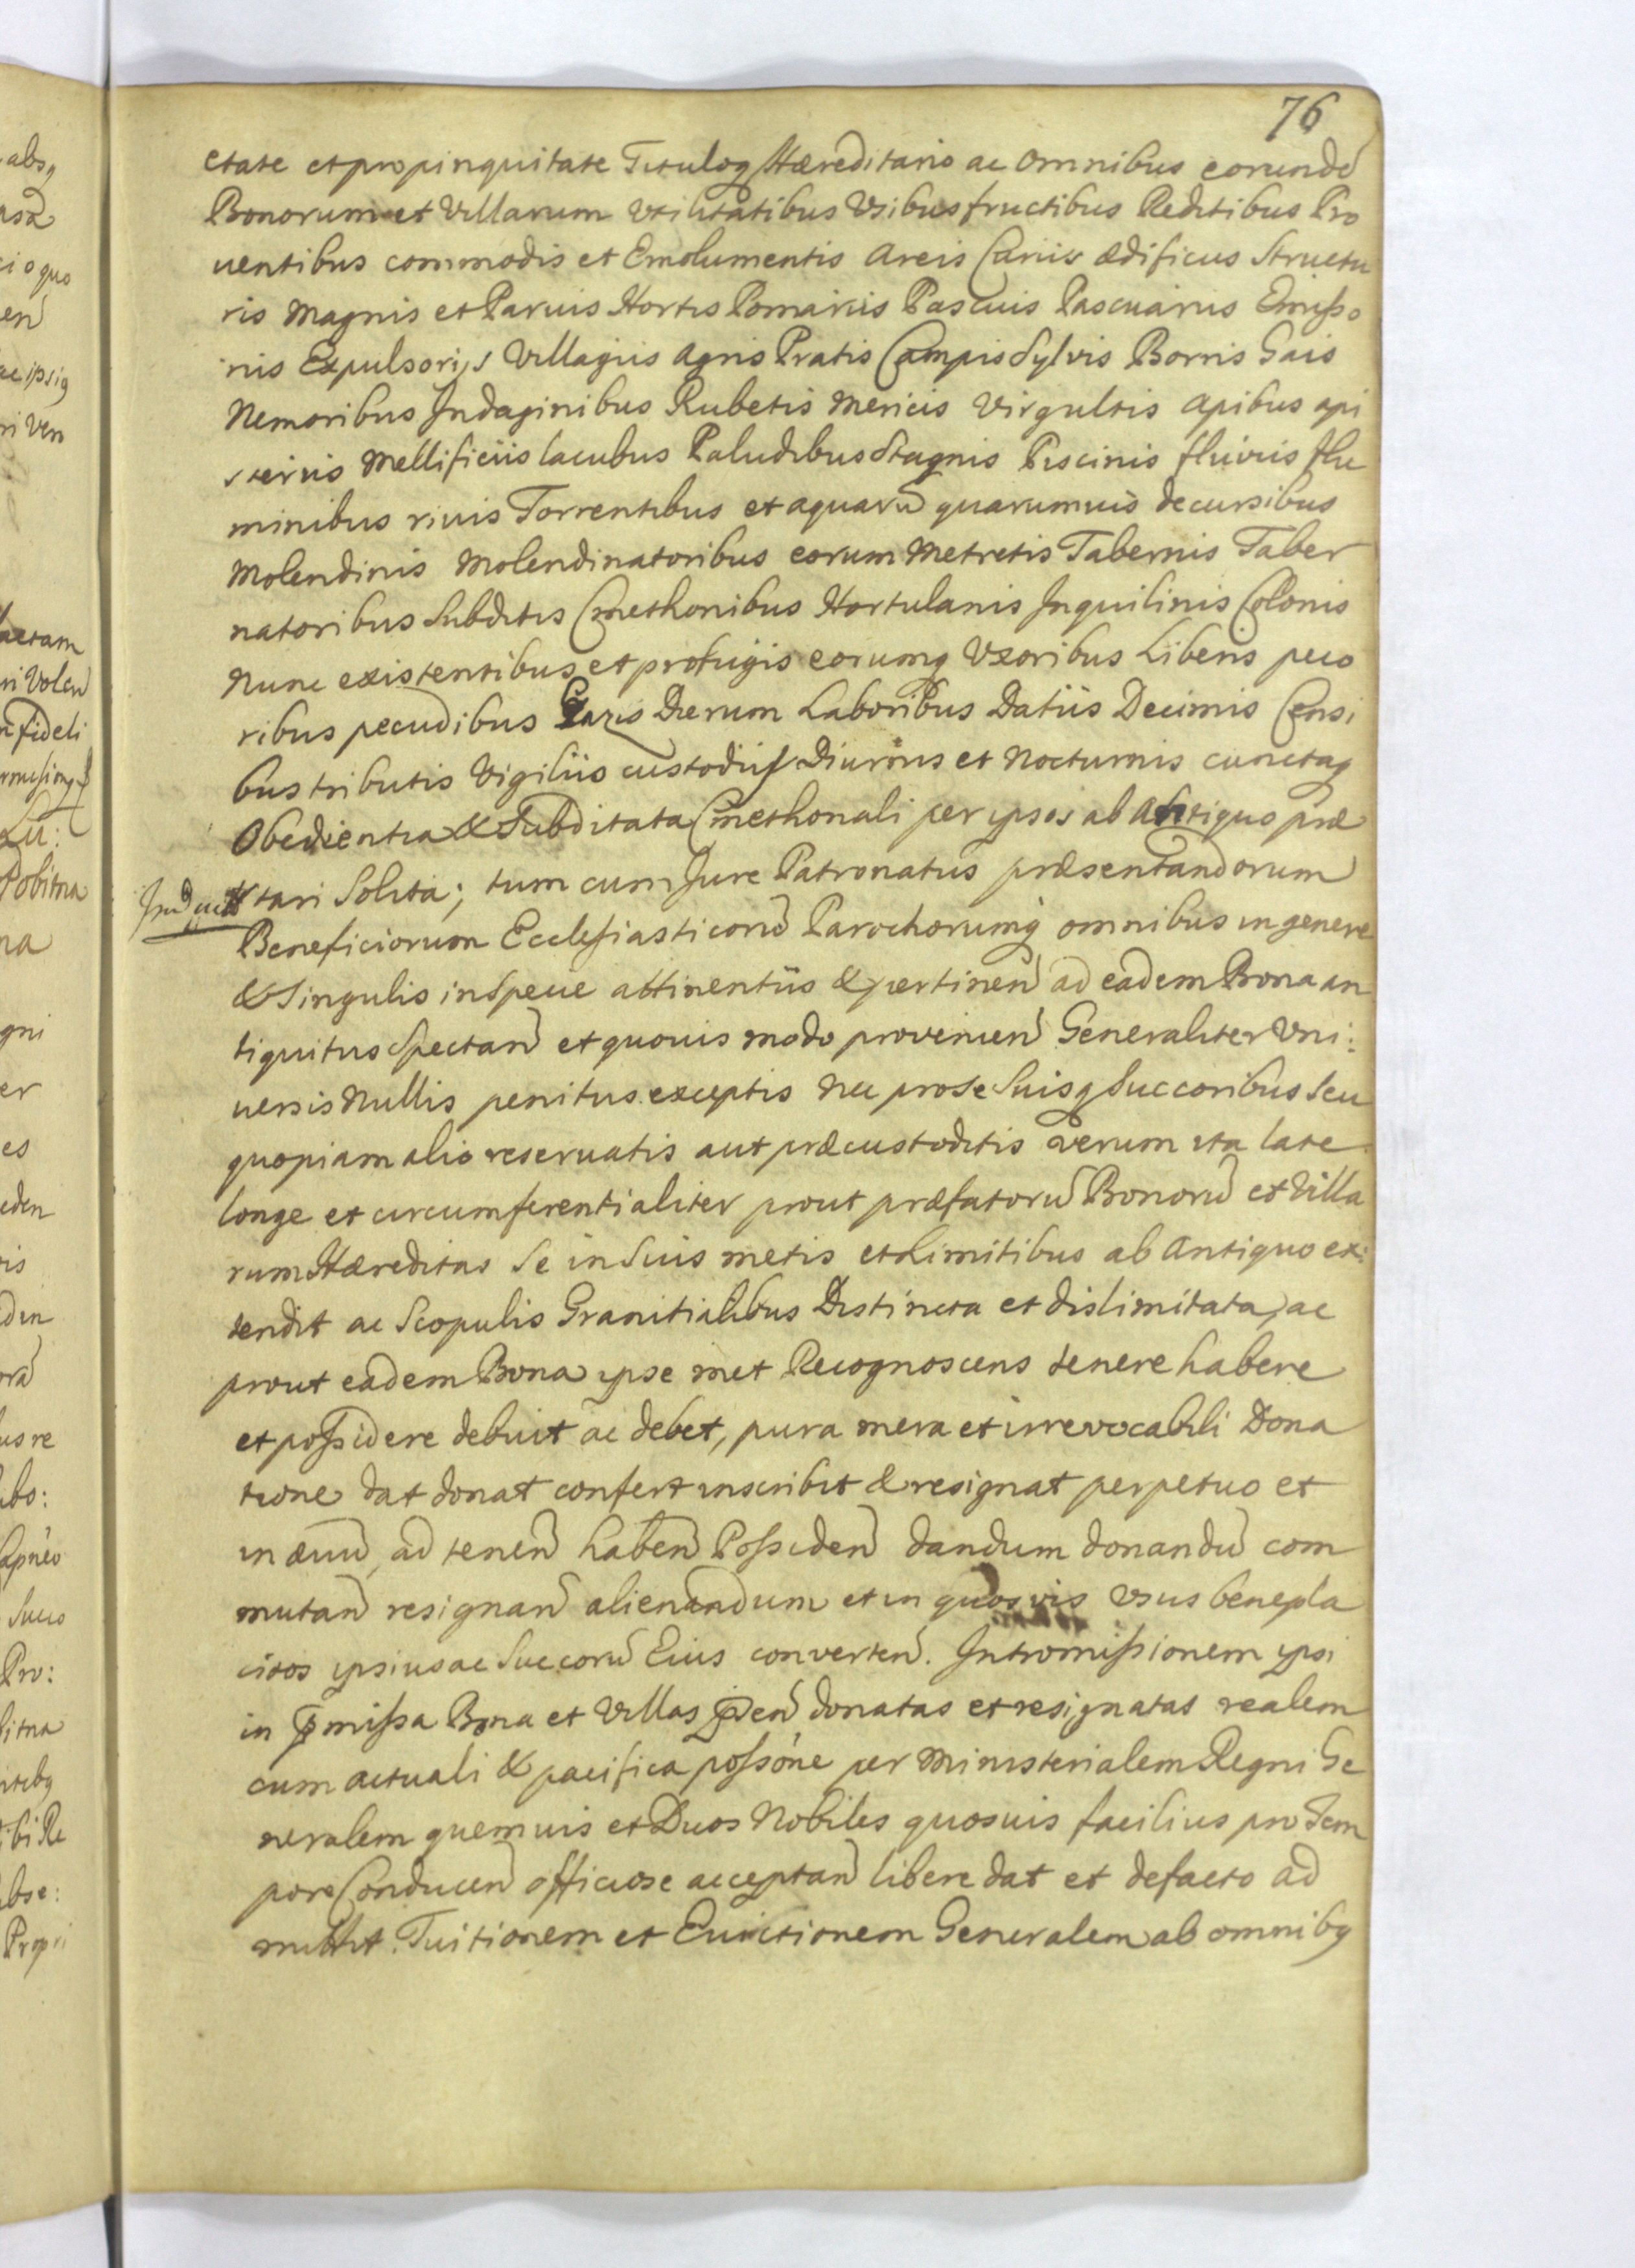 76
etate et propinquitate Tituloq Hæreditario ac omnibus eorundē
Bonorum et Villarum Vtilitatibus Vsibus fructibus Reditibus Pro
uentibus commodis et Emolumentis Areis Curiis ædificiis Structu
ris Magnis et Paruis Hortis Pomariis Pascuis Pascuariis Emisso
riis Expulsoriis Villagiis Agris Pratis Campis Sylvis Borris Gais
Nemoribus Indaginibus Rubetis Mericis Virgultis Apibus api
steriis Mellificiis lacubus Paludibus Stagnis Piscinis fluviis flu
minibus riuis Torrentibus et aquarū quarumuis decursibus
Molendinis Molendinatoribus eorum Metretis Tabernis Taber
natoribus Subditis Cmethonibus Hortulanis Inquilinis Colonis
Nunc existentibus et profugis eorumq Vxoribus Liberis peco
ribus pecudibus Dierum Laboribus Datiis Decimis Censi
bus tributis Vigiliis custodiis Diurnis et Nocturnis cunctaq
Obedientia & Subditata Cmethonali per ipsos ab Antiquo præ
stari Solita; tum cum Jure Patronatus præsentandorum
Beneficiorum Ecclesiasticorū Parochorumq omnibus in genere
& Singulis in Specie attinentiis & pertinen̄ ad eadem Bona an
tiquitus Spectan̄ et quouis modo provenien̄ Generaliter Vni:
uersis Nullis penitus exceptis Nec pro se Suisq Succoribus Seu
quopiam alio reseruatis aut præcustoditis verum ita late
longe et circumferentialiter prout præfatorū Bonorū et Villa
rum Hæreditas Se in Suis metis et Limitibus ab Antiquo ex:
tendit ac Scopulis Granitialibus Distincta et dislimitata, ac
prout eadem Bona ipse met Recognoscens tenere habere
et possidere debuit ac debet, pura mera et irrevocabili Dona
tione dat donat confert inscribit & resignat perpetuo et
in æuū, ad tenen̄ haben̄ Possiden̄ dandum donandū com
mutan̄ resignan̄ alienandum et in quosvis Vsus benepla
citos ipsius ac Succorū Eius converten̄. Intromissionem ipsi
in p̄missa Bona et Villas p̄den̄ donatas et resignatas realem
cum actuali & pacifica possōne per Ministerialem Regni Ge
neralem quemuis et Duos Nobiles quosuis facilius pro Tem
pore Conducen̄ officiose acceptan̄ libere dat et defacto ad
mittit. Tuitionem et Euictionem Generalem ab omnibq